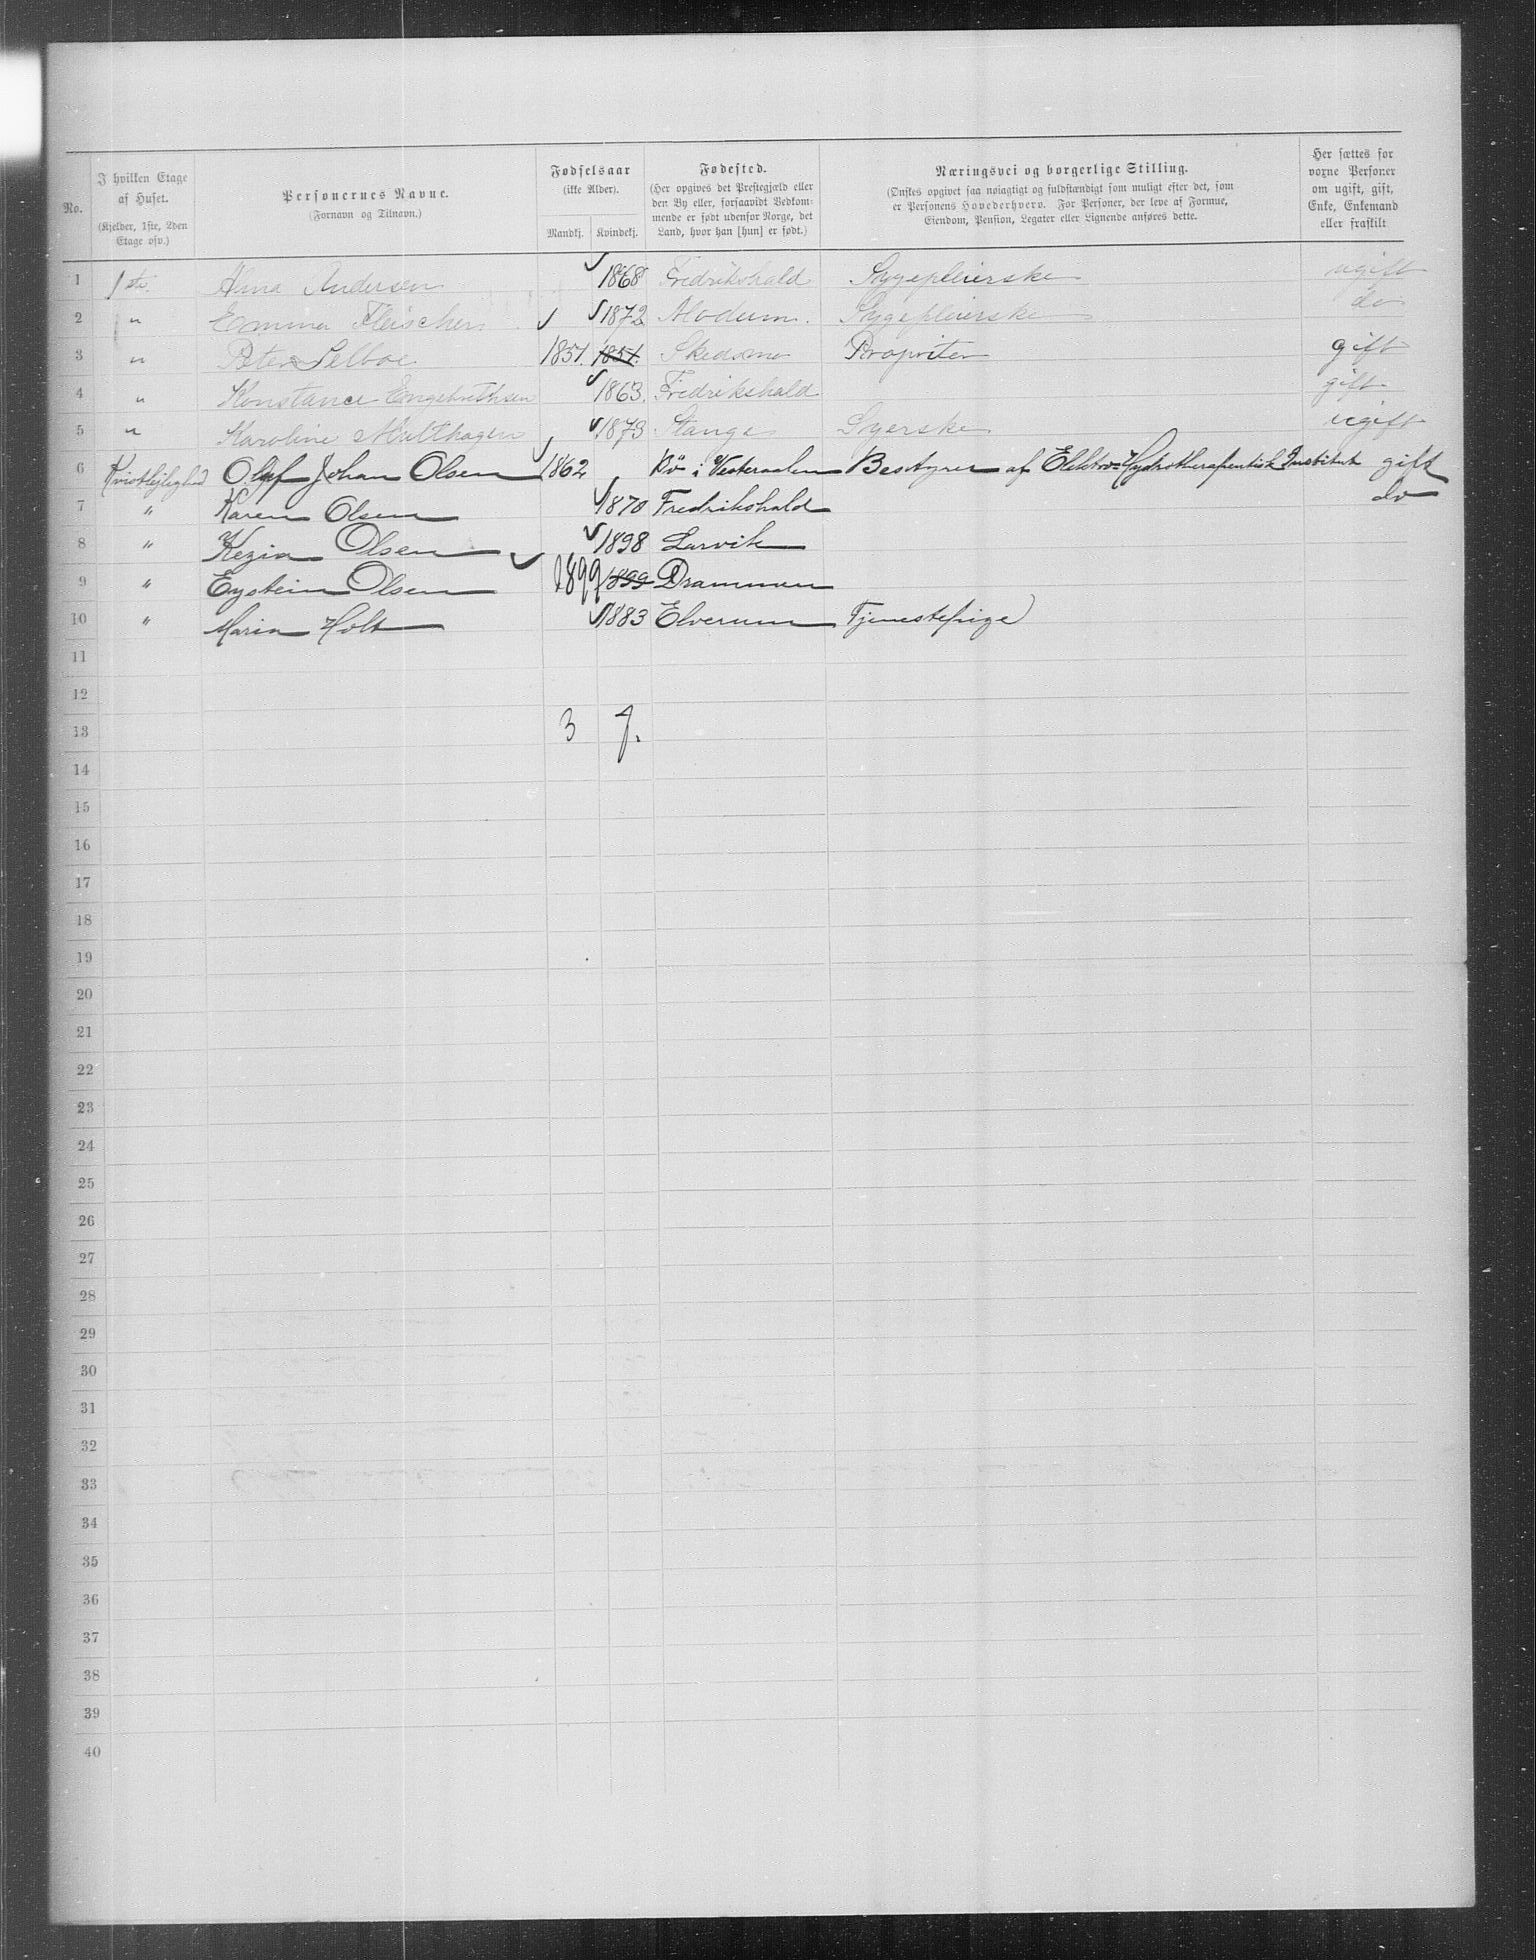 No.
I hvilken Etage af Huset.
(Kjelder, 1ste, 2den Etage osv.)
Personernes Navne.
(Fornavn og Tilnavn.)
Fødselsaar
(ikke Alder).
Mandkj. Kvindekj.
Fødested.
(Her opgives det Prestegjæld eller den By eller, forsaavidt Vedkommende er født udenfor Norge, det Land, hvor han [hun] er født.)
Næringsvei og borgerlige Stilling.
(Ønskes opgivet saa nøiagtigt og fuldstændigt som muligt efter det, som er Personens Hovederhverv. For Personer, der leve af Formue, Eiendom, Pension, Legater eller Lignende anføres dette.
Her sættes for voxne Personer om ugift, gift, Enke, Enkemand eller fraskilt
1 1ste. Anna Andersen 1868 Fredrikshald Sygepleierske ugift
2 " Emma Fleischer 1872 Modum. Sygepleierske do
3 " Peter Selboe 1851. 1851. Skedsmo Propriter gift
4 " Konstance Engebrethsen 1863. Fredrikshald gift
5 " Karoline Malthagen 1873 Stange Syerske ugift
6 Kvistlejlighed Oluf Johan Olsen 1862 Bø i Vesteraalen Bestyrer af Elektro-Hydrotherapeutisk Institut gift
7 " Karen Olsen 1870 Fredrikshald do
8 " Kezia Olsen 1898 Larvik
9 " Eystein Olsen 1899 1899 Drammen
10 " Maria Holt 1883 Elverum Tjenestepige
11
12
13 3 7.
14
15
16
17
18
19
20
21
22
23
24
25
26
27
28
29
30
31
32
33
34
35
36
37
38
39
40